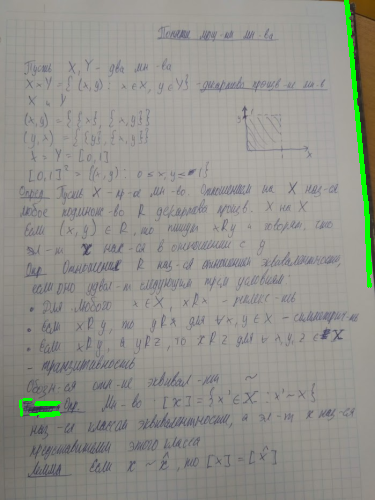 Понятие мощ-ти мн-ва
Пусть X, Y - два мн-ва
X × Y = { (x, y) : x ∈ X, y ∈ Y } - декартово произв-е мн-в
X и Y
(x, y) = { {x}, {x, y} }
(y, x) = { {y}, {x, y} }
X = Y = [0, 1]
[0, 1]² = { (x, y) : 0 ≤ x, y ≤ 1 }
y
x
Опред. Пусть X - пр-ое мн-во. Отношением на X наз-ся
любое подмнож-во R декартова произв. X на X
Если (x, y) ∈ R, то пишут xRy и говорят, что
эл-т x нах-ся в отношении с y
Опр. Отношение R наз-ся отношением эквивалентности,
если оно удовл-т следующим трем условиям:
• Для любого x ∈ X, xRx - рефлекс-ть
• если xRy, то yRx для ∀ x, y ∈ X - симметрич-ть
• если xRy, и yRz, то xRz для ∀ x, y, z ∈ X
- транзитивность
Обозн-ся отн-ие эквивал-ти ~
Опр. Мн-во : [x] = { x' ∈ X : x' ~ x }
наз-ся классом эквивалентности, а эл-т x наз-ся
представителем этого класса
Лемма Если x ~ x̂, то [x] = [x̂]